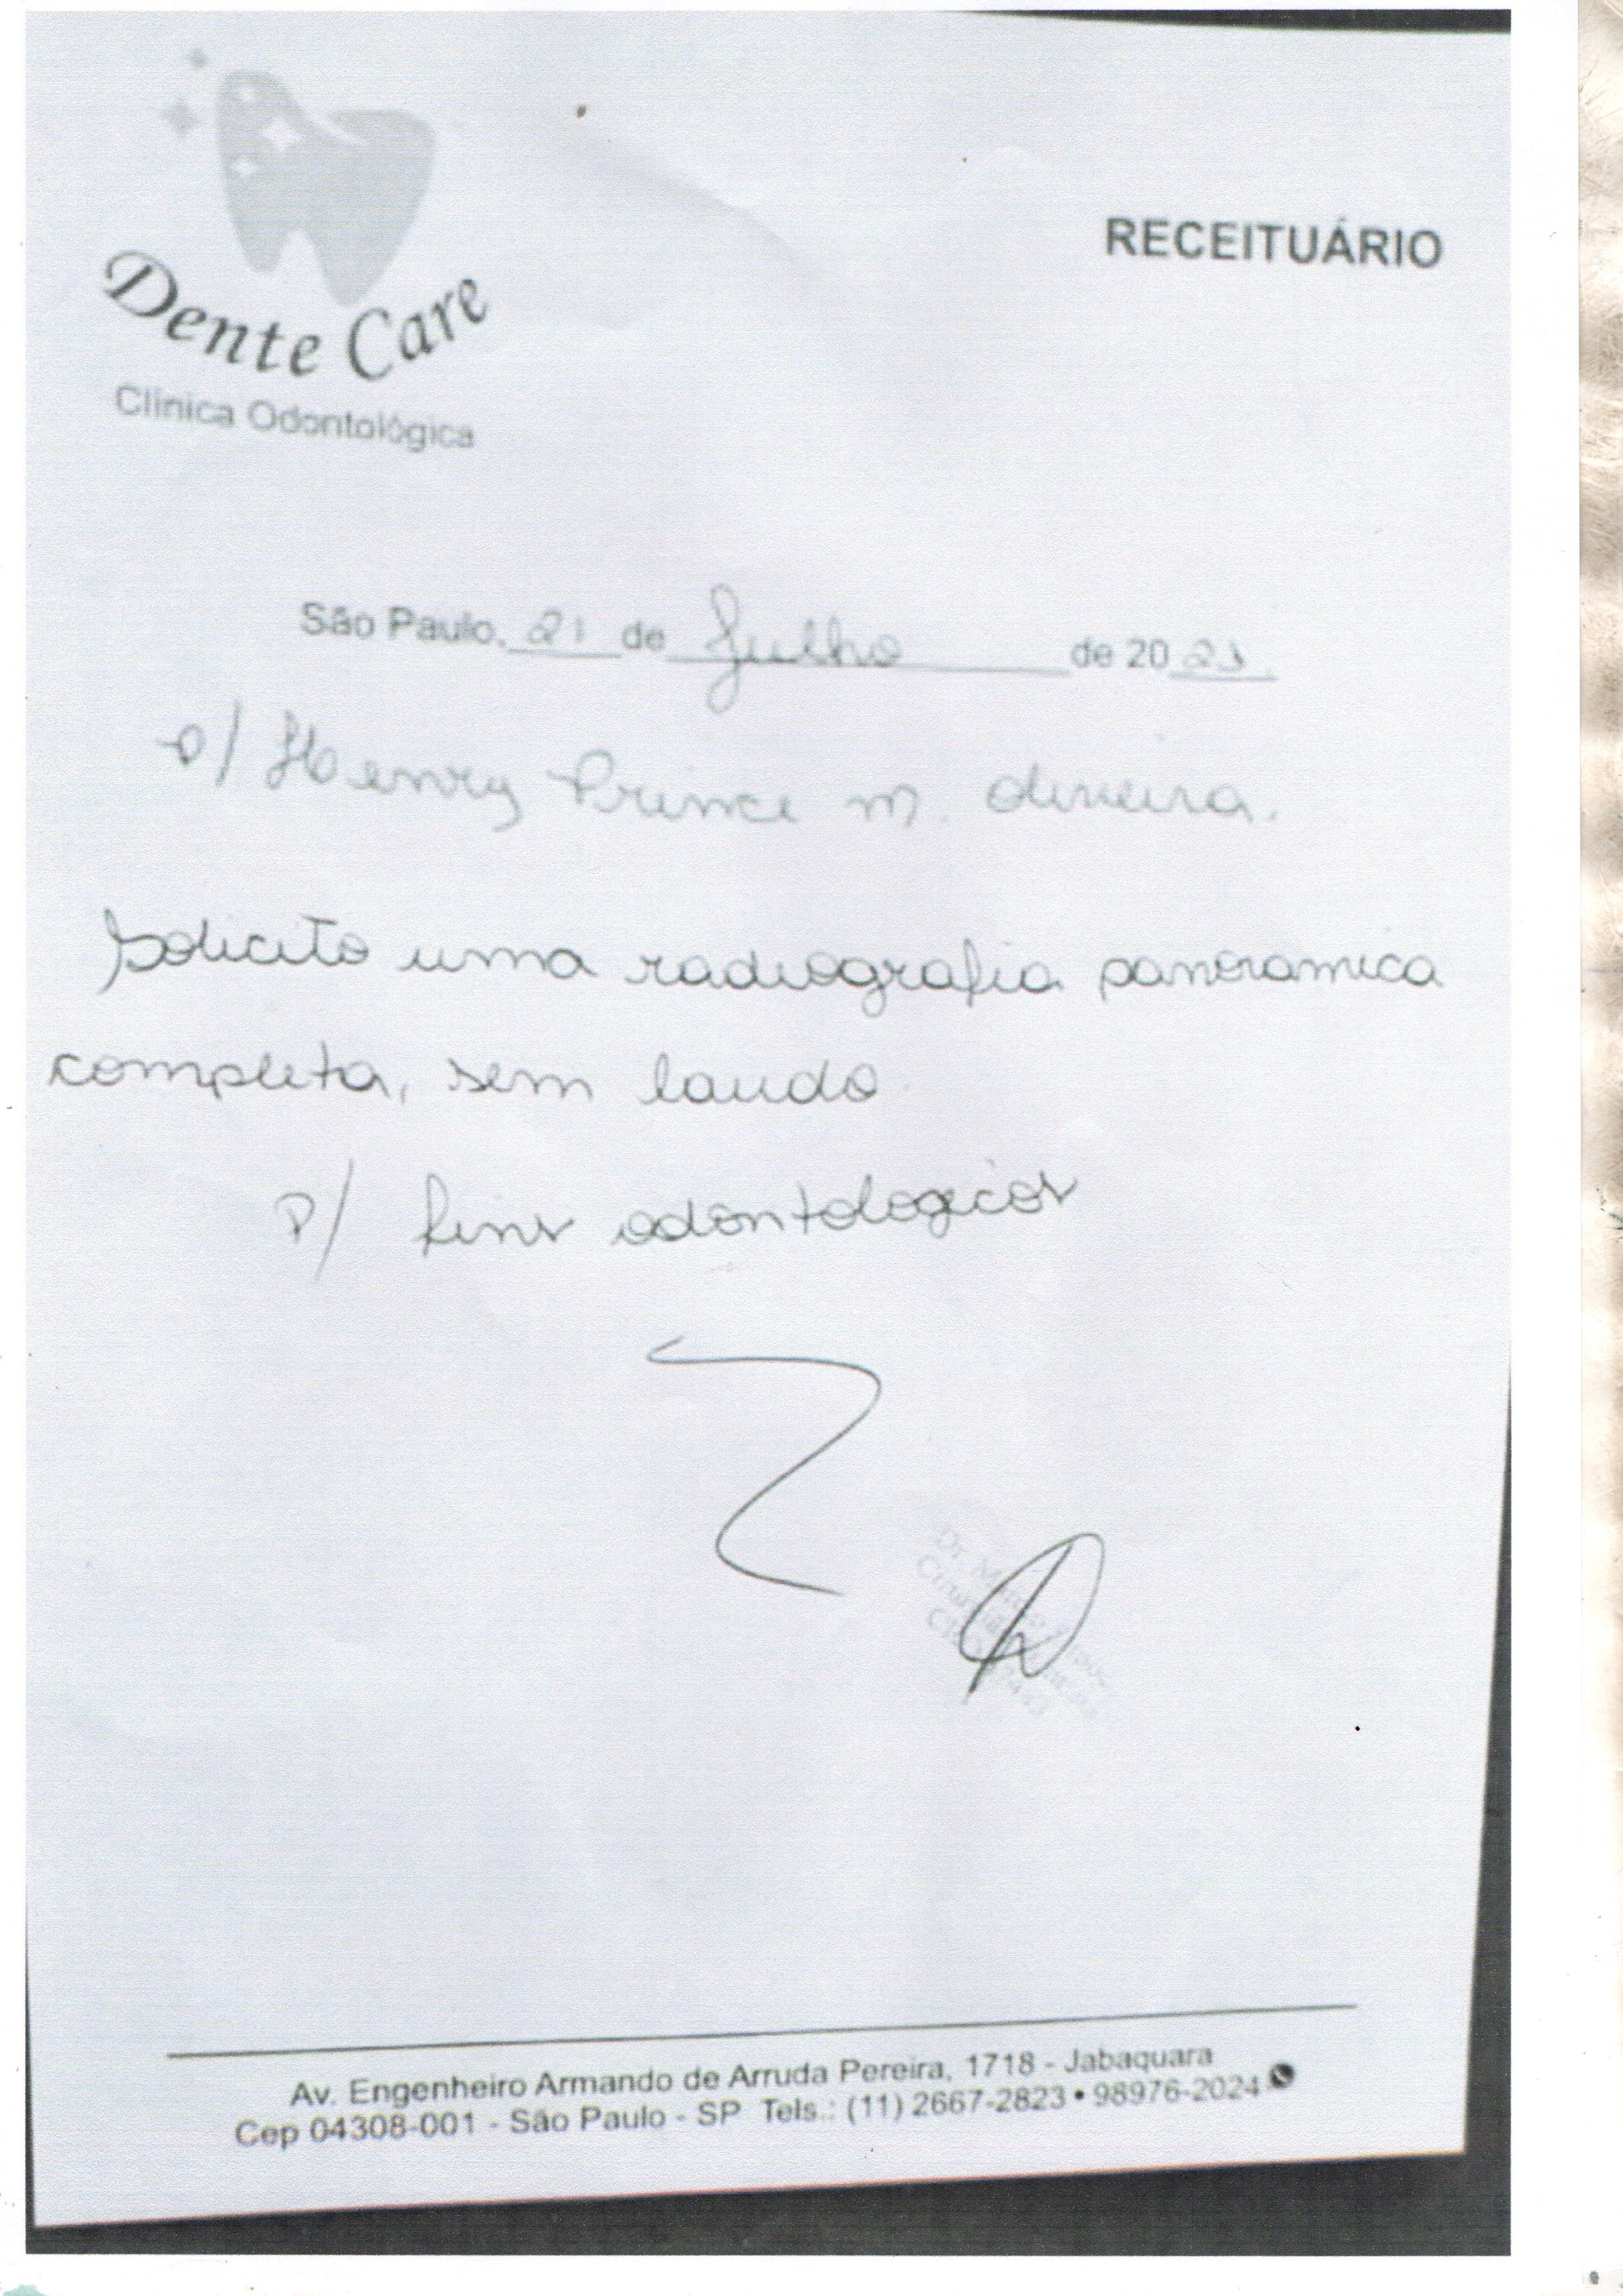 Dente Care
Clínica Odontológica
RECEITUÁRIO
São Paulo, 21 de Julho de 20
P/ Henry Prince M. Oliveira.
Solicito uma radiografia panoramica
completa, sem laudo
P/ fins odontologicos
Dr.
Av. Engenheiro Armando de Arruda Pereira, 1718 - Jabaquara
Cep 04308-001 - São Paulo - SP Tels.: (11) 2667-2823 • 98976-2024